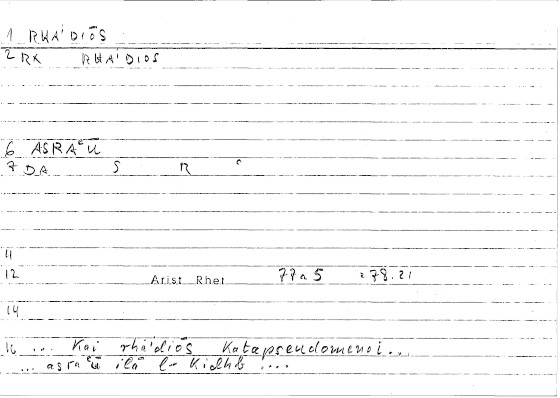 1 RHA'DIŌS
2 RX RHA'DIOS
6 ASRAᶜŪ
7 DA S R ᶜ
11
12 Arist Rhet 77a5 =78.21
14
16 ... Kai rha'diōs Katapseudomenoi...
... asraᶜū ilā l-Kidhb ....